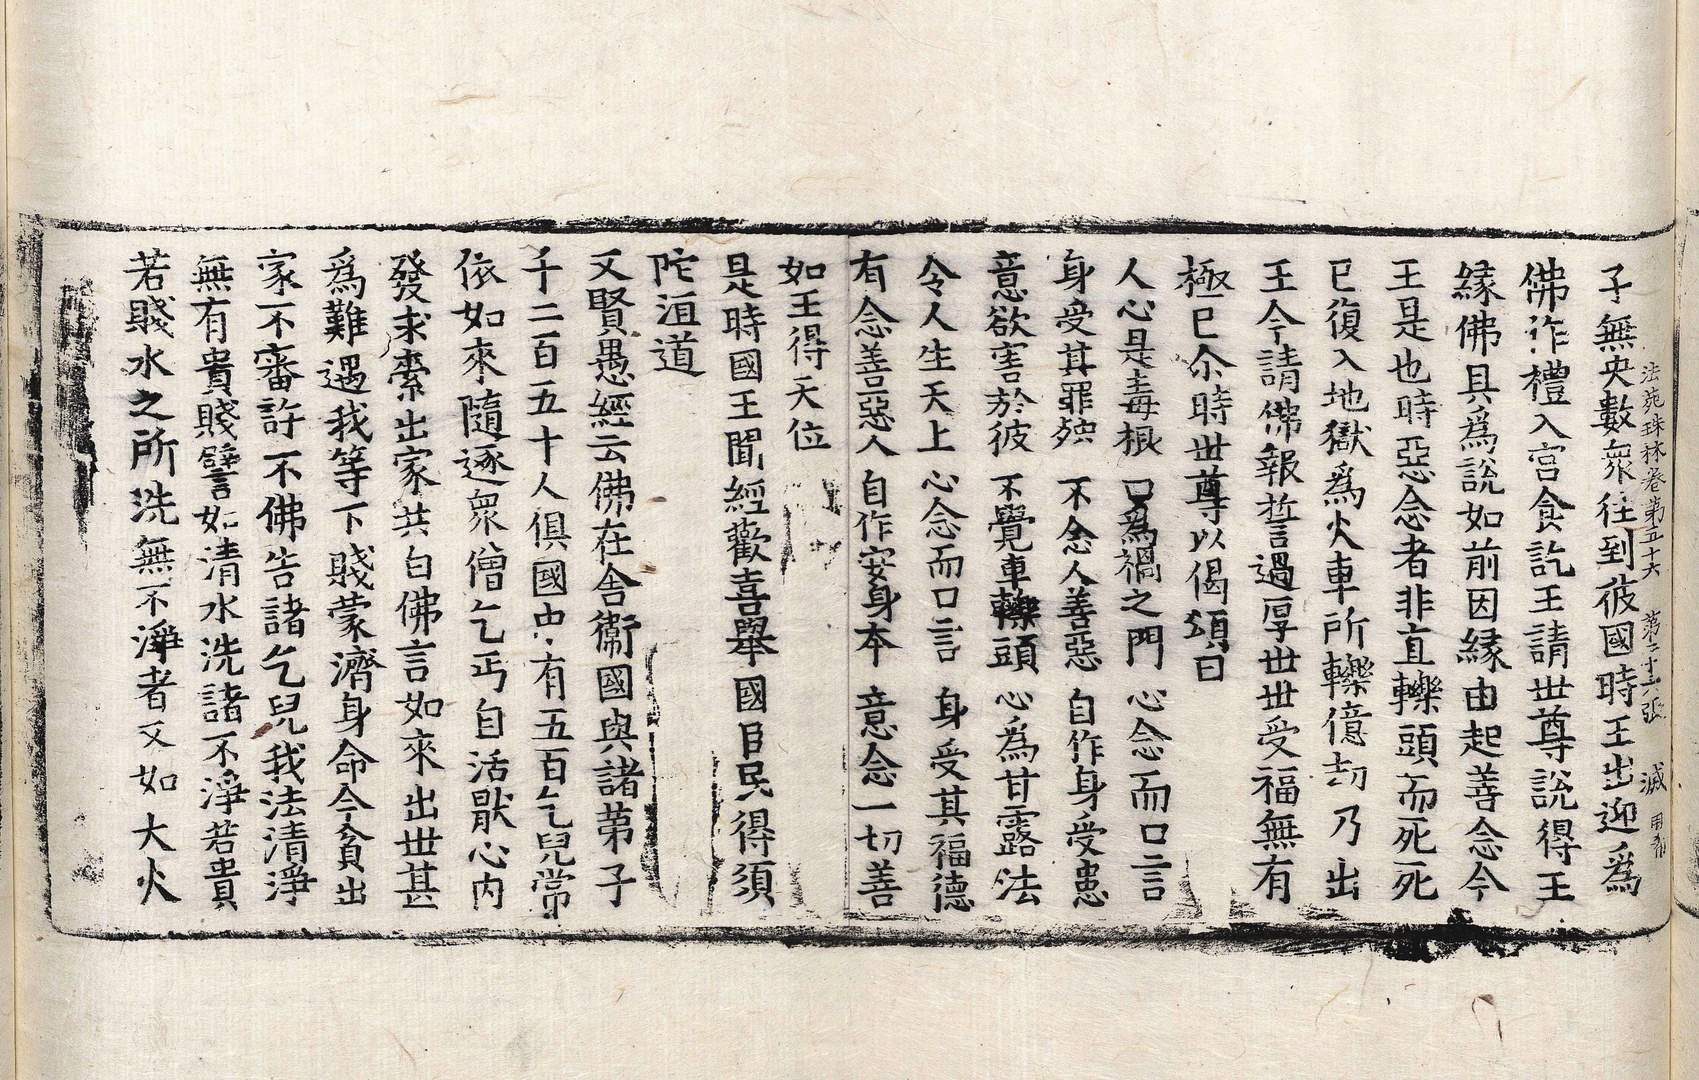 法苑珠林卷第五十六 第二十六張 滅
子無央數衆往到彼國時王出迎爲
佛作禮入宫食訖王請世尊說得王
緣佛具爲說如前因緣由起善念今
王是也時惡念者非直轢頭而死死
已復入地獄爲火車所轢億劫乃出
王今請佛報誓過厚世世受福無有
極已尒時世尊以偈頌曰
人心是毒根 口爲禍之門 心念而口言
身受其罪殃 不念人善惡 自作身受患
意欲害於彼 不覺車轢頭 心爲甘露法
令人生天上 心念而口言 身受其福德
有念善惡人 自作安身本 意念一切善
如王得天位
是時國王聞經歡喜舉國臣民得須
陀洹道
又賢愚經云佛在舍衛國與諸弟子
千二百五十人俱國中有五百乞兒常
依如來隨逐衆僧乞丐自活厭心内
發求索出家共白佛言如來出世甚
爲難遇我等下賤蒙濟身命今貪出
家不審許不佛告諸乞兒我法清淨
無有貴賤譬如清水洗諸不淨若貴
若賤水之所洗無不淨者又如大火